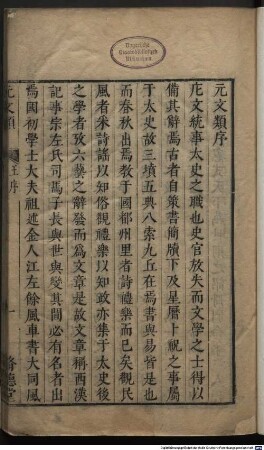 元文類序
庀文統事太史之職也史官放失而文學之士得以
備其辭焉古者自策書簡牘下及星曆卜祝之事屬
于太史故三墳五典八索九丘在焉書與易皆是也
而春秋出焉教于國都州里者詩禮樂而已矣觀民
風者采詩謠以知俗觀禮樂以知政亦集于太史後
之學者攷六藝之辭發而為文章是故文章稱西漢
記事宗左氏司馬子長與世與變其間必有名者出
焉國初學士大夫祖述金人江左餘風車書大同風
元文類
王序
一
脩德堂
Bayerische
Staatsbibliothek
München